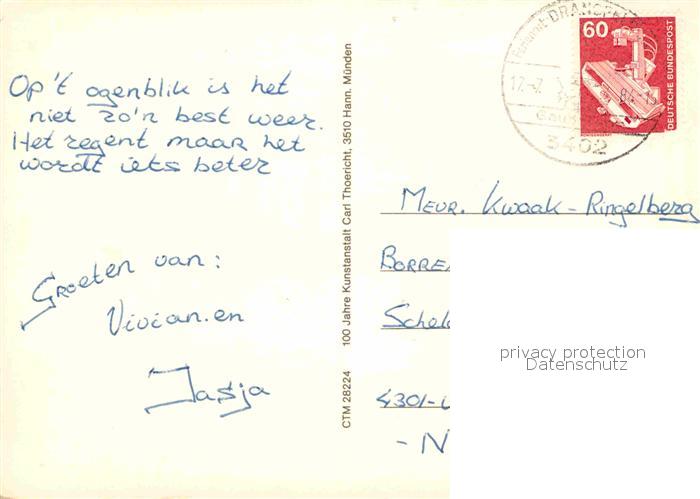 Op't ogenblik is het
niet zo'n best weer.
Het regent maar het
wordt iets beter
Groeten van:
Vivian.en
Jasja
CTM 28224 100 Jahre Kunstanstalt Carl Thoericht, 3510 Hann. Münden
60
DEUTSCHE BUNDESPOST
DRANSFELD
3402
Mevr. Kwaak-Ringelberg
Borre
Schel
4301-
- N
privacy protection
Datenschutz